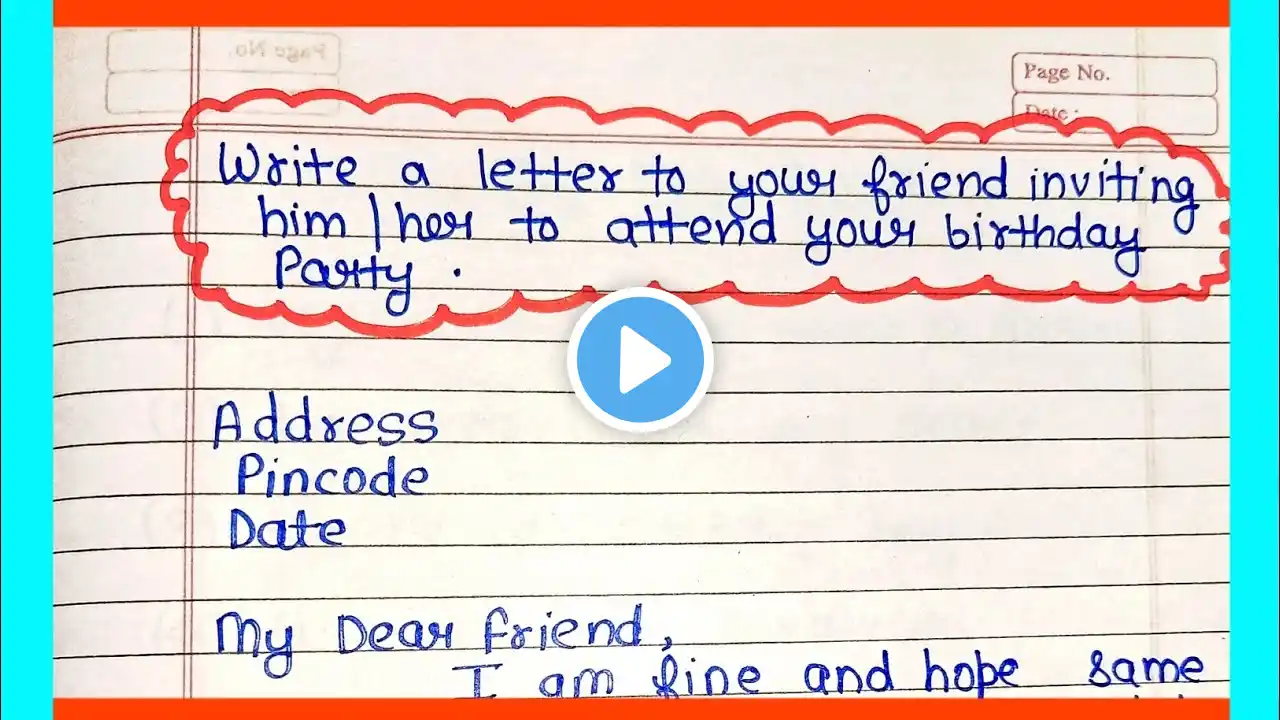 Page No.
Page No.
Date :
Write a letter to your friend inviting
him / her to attend your birthday
Party .
Address
Pincode
Date
My Dear friend,
I am fine and hope same